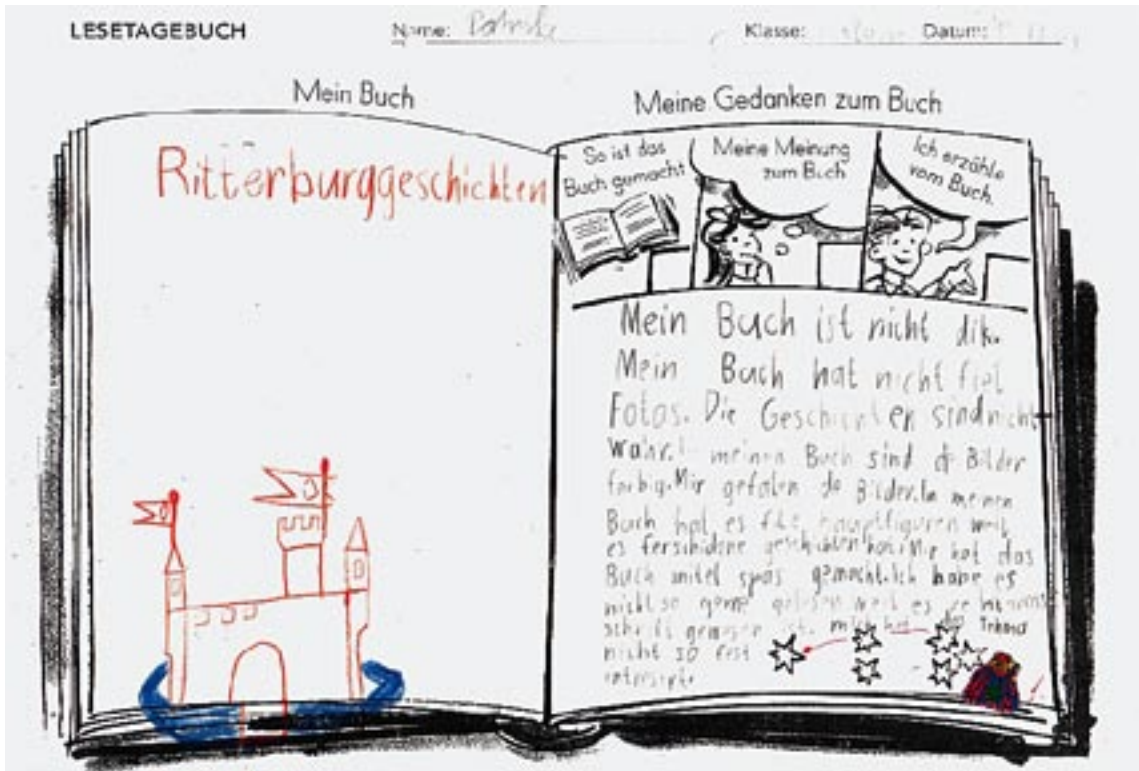 LESETAGEBUCH
Name:
Klasse:
Datum:
Mein Buch
Meine Gedanken zum Buch
Ritterburggeschichten
So ist das
Buch gemacht
Meine Meinung
zum Buch
Ich erzähle
vom Buch.
Mein Buch ist nicht dik.
Mein Buch hat nicht fiel
Fotos. Die Geschichten sind nicht
wahr. meinen Buch sind di Bilder
farbig. Mir gefalen di Bilder. In meinen
Buch hat es file hauptfiguren weil
es ferschidene geschichten hat. Mir hat das
Buch mitel spas gemacht. Ich habe es
nicht so gerne gelesen weil es
schrift gewesen ist. mich hat das Tehma
nicht so fest